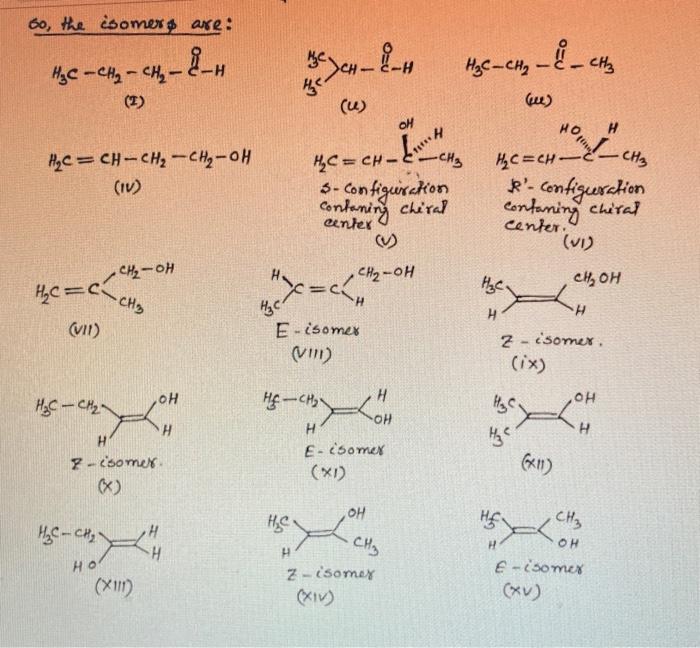 So, the isomers are:
H₃C-CH₂-CH₂-C-H
O
(I)
H₃C
H₃C
CH-C-H
O
(II)
H₃C-CH₂-C-CH₃
O
(III)
H₂C=CH-CH₂-CH₂-OH
(IV)
OH
H
H₂C=CH-C-CH₃
S-Configuration
Contaning chiral
center
(V)
HO H
H₂C=CH-C-CH₃
R'-Configuration
contaning chiral
center.
(VI)
CH₂-OH
H₂C=C
CH₃
(VII)
H CH₂-OH
C=C
H₃C H
E-isomer
(VIII)
H₃C CH₂OH
H H
Z-isomer.
(ix)
H₃C-CH₂ OH
H H
Z-isomer.
(X)
H₃C-CH₂ H
H OH
E-isomer
(XI)
H₃C OH
H₃C H
(XII)
H₃C-CH₂ H
HO H
(XIII)
H₃C OH
H CH₃
Z-isomer
(XIV)
H₃C CH₃
H OH
E-isomer
(XV)